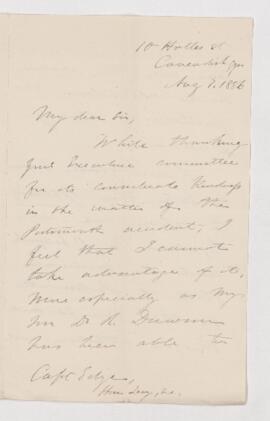 10 Holles St
Cavendish Sqr
Aug 7. 1886
My dear Sir,
While thanking
your Executive committee
for its considerate kindness
in the matter of the
Portsmouth accident, I
feel that I cannot
take advantage of it,
more especially as my
son Dr R.
has been able to
Capt Edge,
Hon Secy, &c.